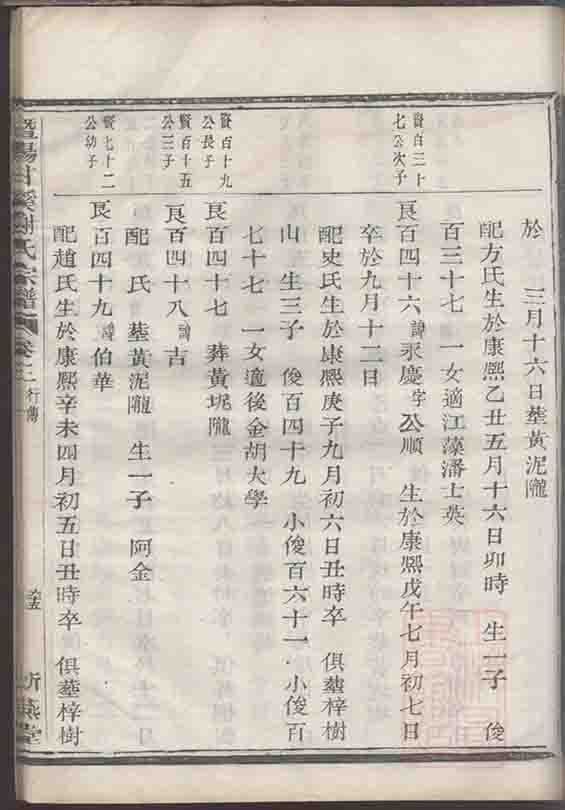 於　三月十六日塟黃泥隴
配方氏生於康熙乙丑五月十六日卯時　生一子　俊
百三十七　一女適江藻潘士英
賢百三十
七公次子
良百四十六諱永慶字公順　生於康熙戊午七月初七日
卒於九月十二日
配史氏生於康熙庚子九月初六日丑時卒　俱塟梓樹
山　生三子　俊百四十九　小俊百六十一　小俊百
七十七　一女適後金胡大學
賢百十九
公長子
良百四十七　葬黃坭隴
賢百十五
公三子
良百四十八諱吉
配　氏　塟黃泥隴　生一子　阿金
賢七十二
公幼子
良百四十九諱伯華
配趙氏生於康熙辛未四月初五日丑時卒　俱塟梓樹
暨陽　溪　氏宗譜　卷之二　行傳